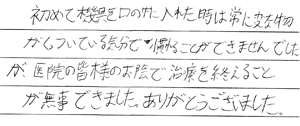 初めて機器を口の中に入れた時は常に変な物
がくっついている気分で慣れることができませんでした
が、医院の皆様のお陰で治療を終えること
が無事できました。ありがとうございました。